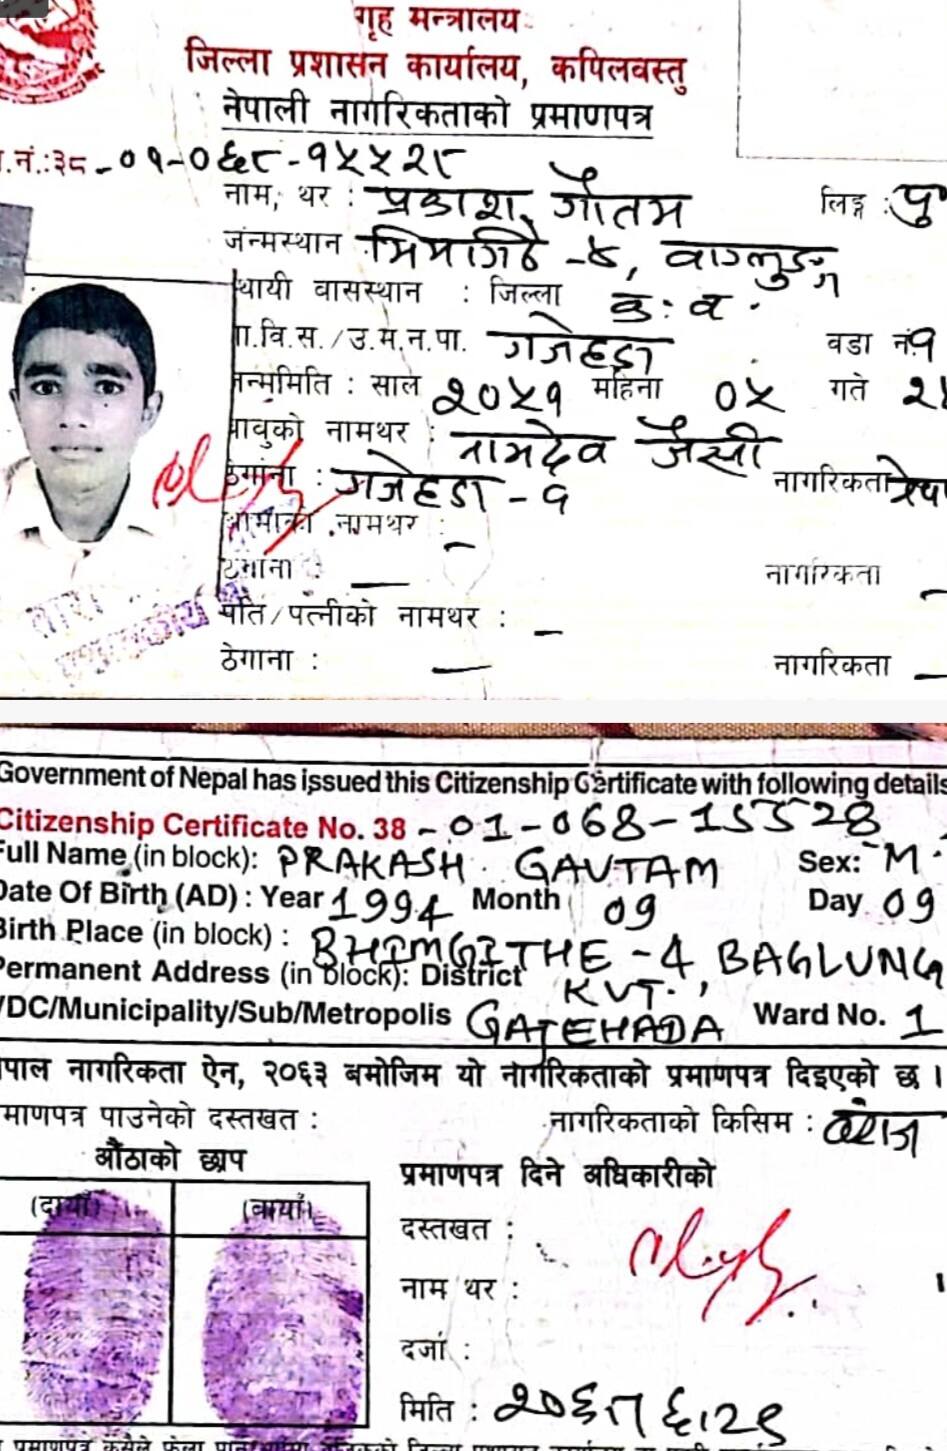 गृह मन्त्रालय
जिल्ला प्रशासन कार्यालय, कपिलवस्तु
नेपाली नागरिकताको प्रमाणपत्र
.नं.:३८-०१-०६८-१५५२८
नाम, थर : प्रकाश गौतम लिङ्ग : पु
जन्मस्थान भिमगिठे -४, वाग्लुङ्ग
थायी वासस्थान : जिल्ला क: व.
गा.वि.स./उ.म.न.पा. गजेहडा वडा नं.१
न्ममिति : साल २०५१ महिना ०५ गते २४
बाबुको नामथर : नामदेव जैसी
ठेगाना : गजेहडा - १ नागरिकता नेपा
आमाको नामथर : -
ठेगाना : - नागरिकता -
पति/पत्नीको नामथर : -
ठेगाना : - नागरिकता -
Government of Nepal has issued this Citizenship Certificate with following details
Citizenship Certificate No. 38 - 01-068-15528
Full Name (in block): PRAKASH GAUTAM Sex: M.
Date Of Birth (AD) : Year 1994 Month 09 Day 09
Birth Place (in block) : BHIMGITHE -4 BAGLUNG
Permanent Address (in block): District KVT.,
VDC/Municipality/Sub/Metropolis GAJEHADA Ward No. 1
नेपाल नागरिकता ऐन, २०६३ बमोजिम यो नागरिकताको प्रमाणपत्र दिइएको छ ।
माणपत्र पाउनेको दस्तखत : नागरिकताको किसिम : वंशज
औंठाको छाप
प्रमाणपत्र दिने अधिकारीको
(दायाँ) (बायाँ)
दस्तखत :
नाम थर :
दर्जा :
मिति : २०६८।६।२९